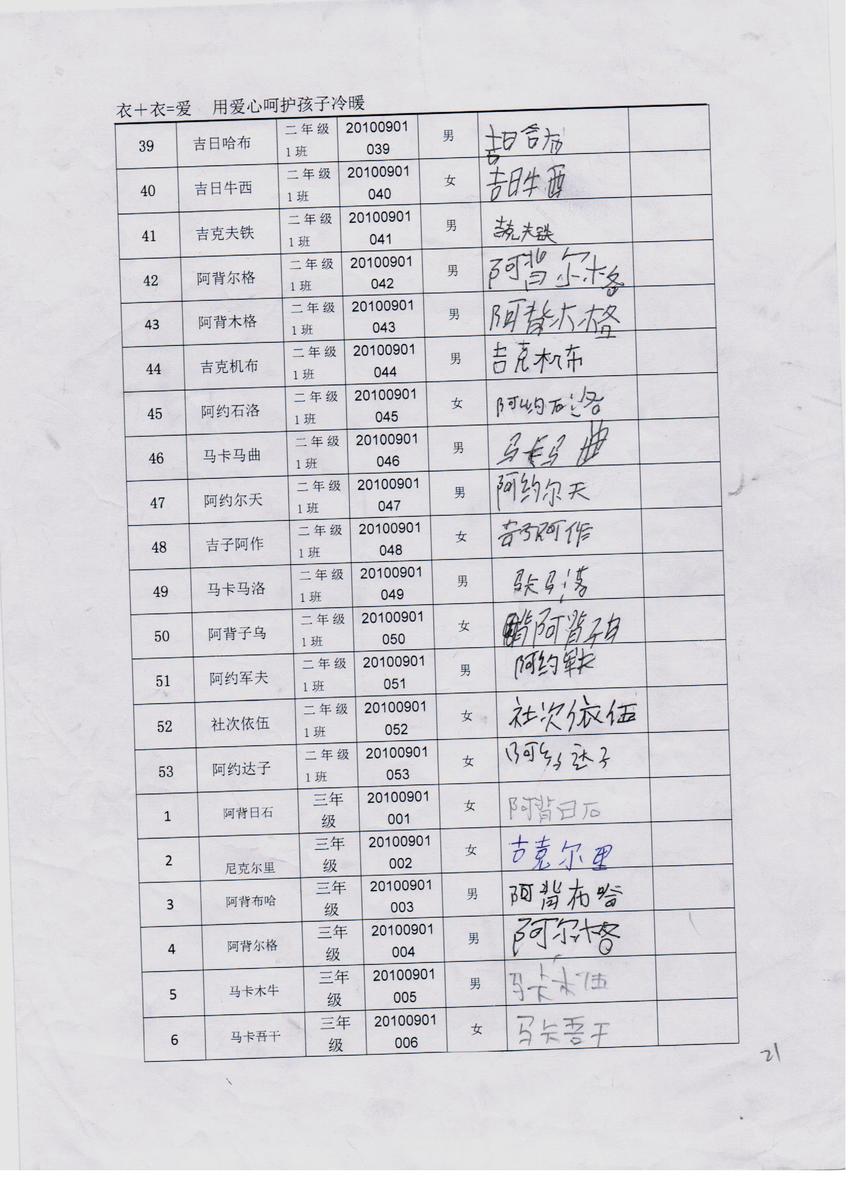 衣＋衣=爱　用爱心呵护孩子冷暖
39 吉日哈布 二年级1班 20100901039 男 吉日哈布
40 吉日牛西 二年级1班 20100901040 女 吉日牛西
41 吉克夫铁 二年级1班 20100901041 男 吉克夫铁
42 阿背尔格 二年级1班 20100901042 男 阿背尔格
43 阿背木格 二年级1班 20100901043 男 阿背木格
44 吉克机布 二年级1班 20100901044 男 吉克机布
45 阿约石洛 二年级1班 20100901045 女 阿约石洛
46 马卡马曲 二年级1班 20100901046 男 马卡马曲
47 阿约尔天 二年级1班 20100901047 男 阿约尔天
48 吉子阿作 二年级1班 20100901048 女 吉子阿作
49 马卡马洛 二年级1班 20100901049 男 马卡马洛
50 阿背子乌 二年级1班 20100901050 女 阿背子
51 阿约军夫 二年级1班 20100901051 男 阿约军夫
52 社次依伍 二年级1班 20100901052 女 社次依伍
53 阿约达子 二年级1班 20100901053 女 阿约达子
1 阿背日石 三年级 20100901001 女 阿背日石
2 尼克尔里 三年级 20100901002 女 吉克尔里
3 阿背布哈 三年级 20100901003 男 阿背布哈
4 阿背尔格 三年级 20100901004 男 阿尔格
5 马卡木牛 三年级 20100901005 男 马卡木伍
6 马卡吾干 三年级 20100901006 女 马卡吾干
21